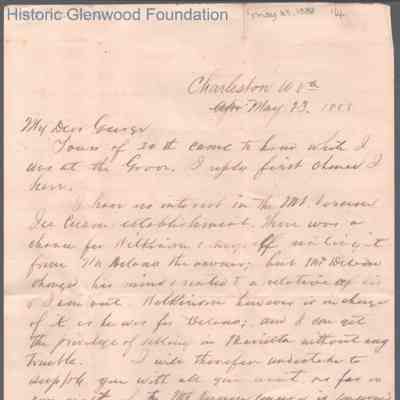 Historic Glenwood Foundation
May 23, 1888
14
Charleston W Va
May 23. 1888
My Dear George
Yours of 20th came to hand while I
was at the Grove. I reply first chance I
have.
I have no interest in the Mt. Vernon
Ice Cream establishment. There was a
chance for Wilkinson & myself renting it
from Mr Delano the owner; but Mr Delano
change his mind & rented to a relative
& I am out. Wilkinson however is in charge
of it as he was for Delano; and I can get
the privilege of selling in Marietta without any
trouble. I will therefore undertake to
supply you with all you want as far as